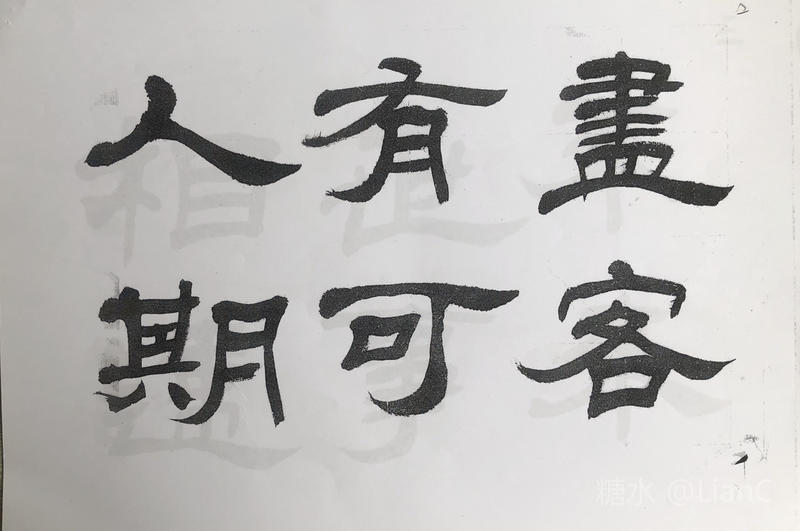 盡客
有可
人期
糖水 @LianC